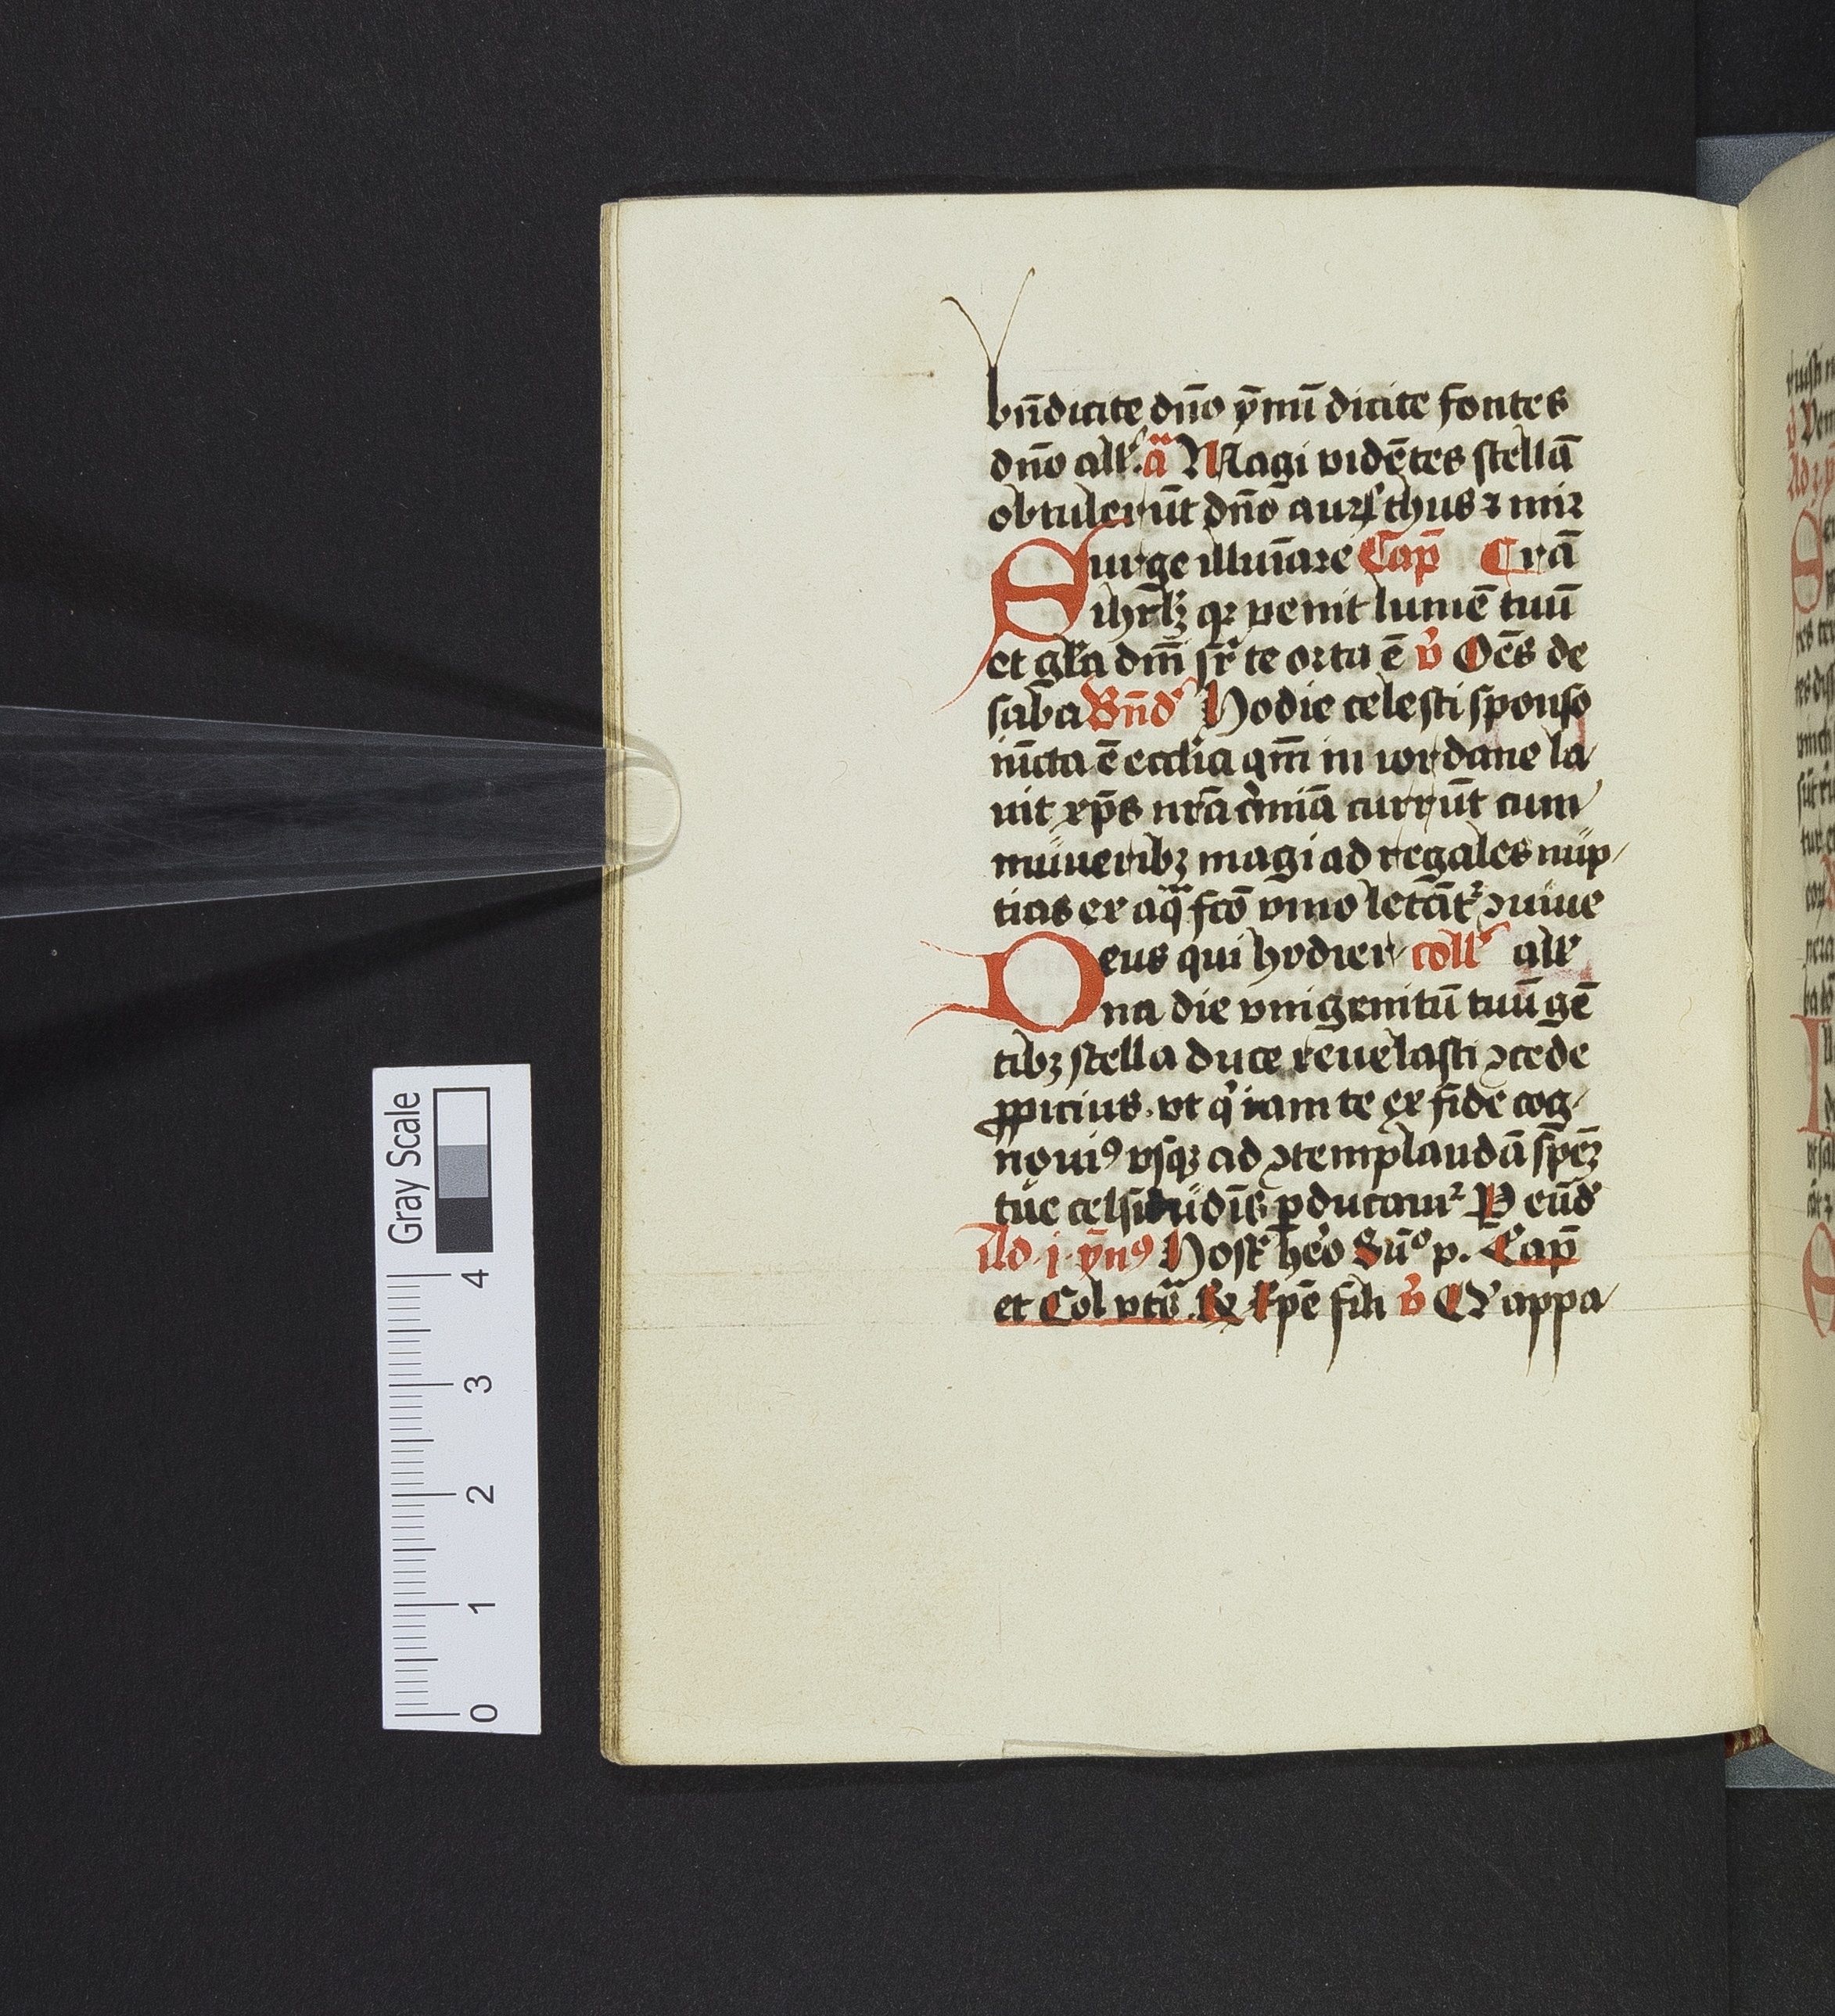 bn̄dicite dn̄o ȳmū dicite fontes
dn̄o all' a̅ Magi vidētes stellā
obtulerūt dn̄o aur̄ thus ⁊ mir
Surge illuīare Cap̄ Crā
ihrlꝫ qꝛ venit lumē tuū
et glīa dm̄ sr̄ te orta ē v̓ Oēs de
saba Bn̄d' Hodie celesti sponso
iūcta ē eccl̄ia qm̄ in iordane la
uit xp̄s nr̄a cͥmīa currūt cum
muneribꝫ magi ad regales nup
tias ex aq̄ fcō vino letāt̄ꝛ ꝯuiue
Deus qui hodier coll' alle
na die vnigenitū tuū gē
tibꝫ stella duce reuelasti ꝯcede
ꝓpicius. vt qͥ iam te ex fide cog
nouiꝰ vsqꝫ ad ꝯtemplandā sp̄eꝫ
tue celsitudīs ꝑducamꝛ P eūd'
Ad .j. ȳnꝰ Host' heͦo Sū' p. Cap̄
et Col vtͣ R Xp̄e fili v̓ Q appa
Gray Scale
4
3
2
1
0